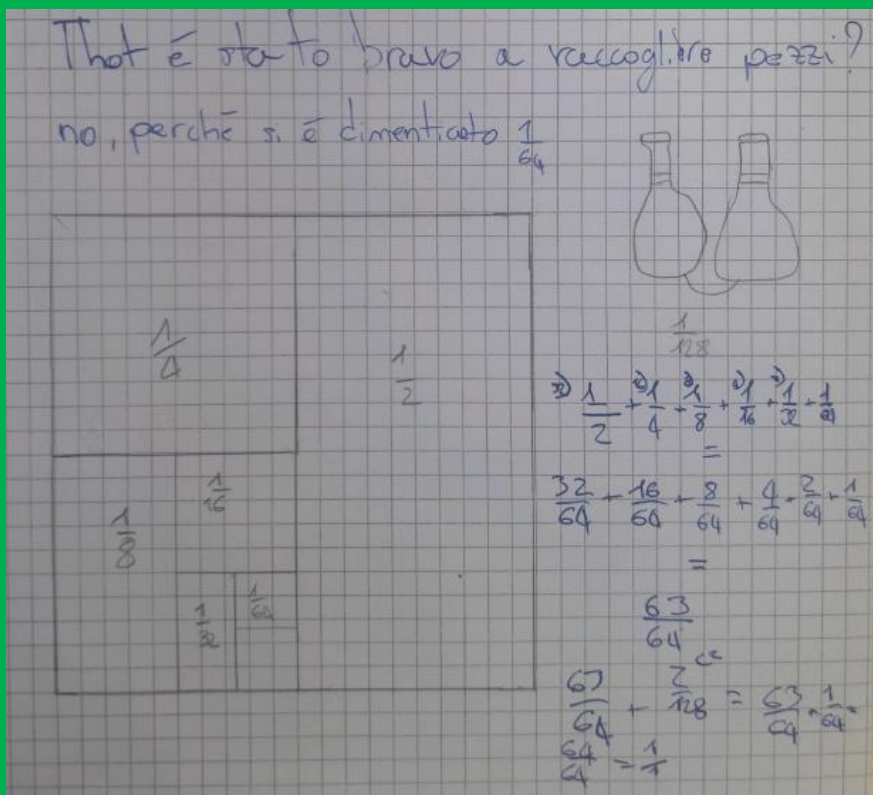 Thot é stato bravo a raccogliere pezzi?
no, perché si é dimenticato 1/64
1/4
1/2
1/8
1/16
1/32
1/64
1/128
32) 1/2 + 1/4 + 1/8 + 1/16 + 1/32 + 1/64
=
32/64 + 16/64 + 8/64 + 4/64 + 2/64 + 1/64
=
63/64
63/64 + 2/128 = 63/64 + 1/64 =
64/64 = 1/1